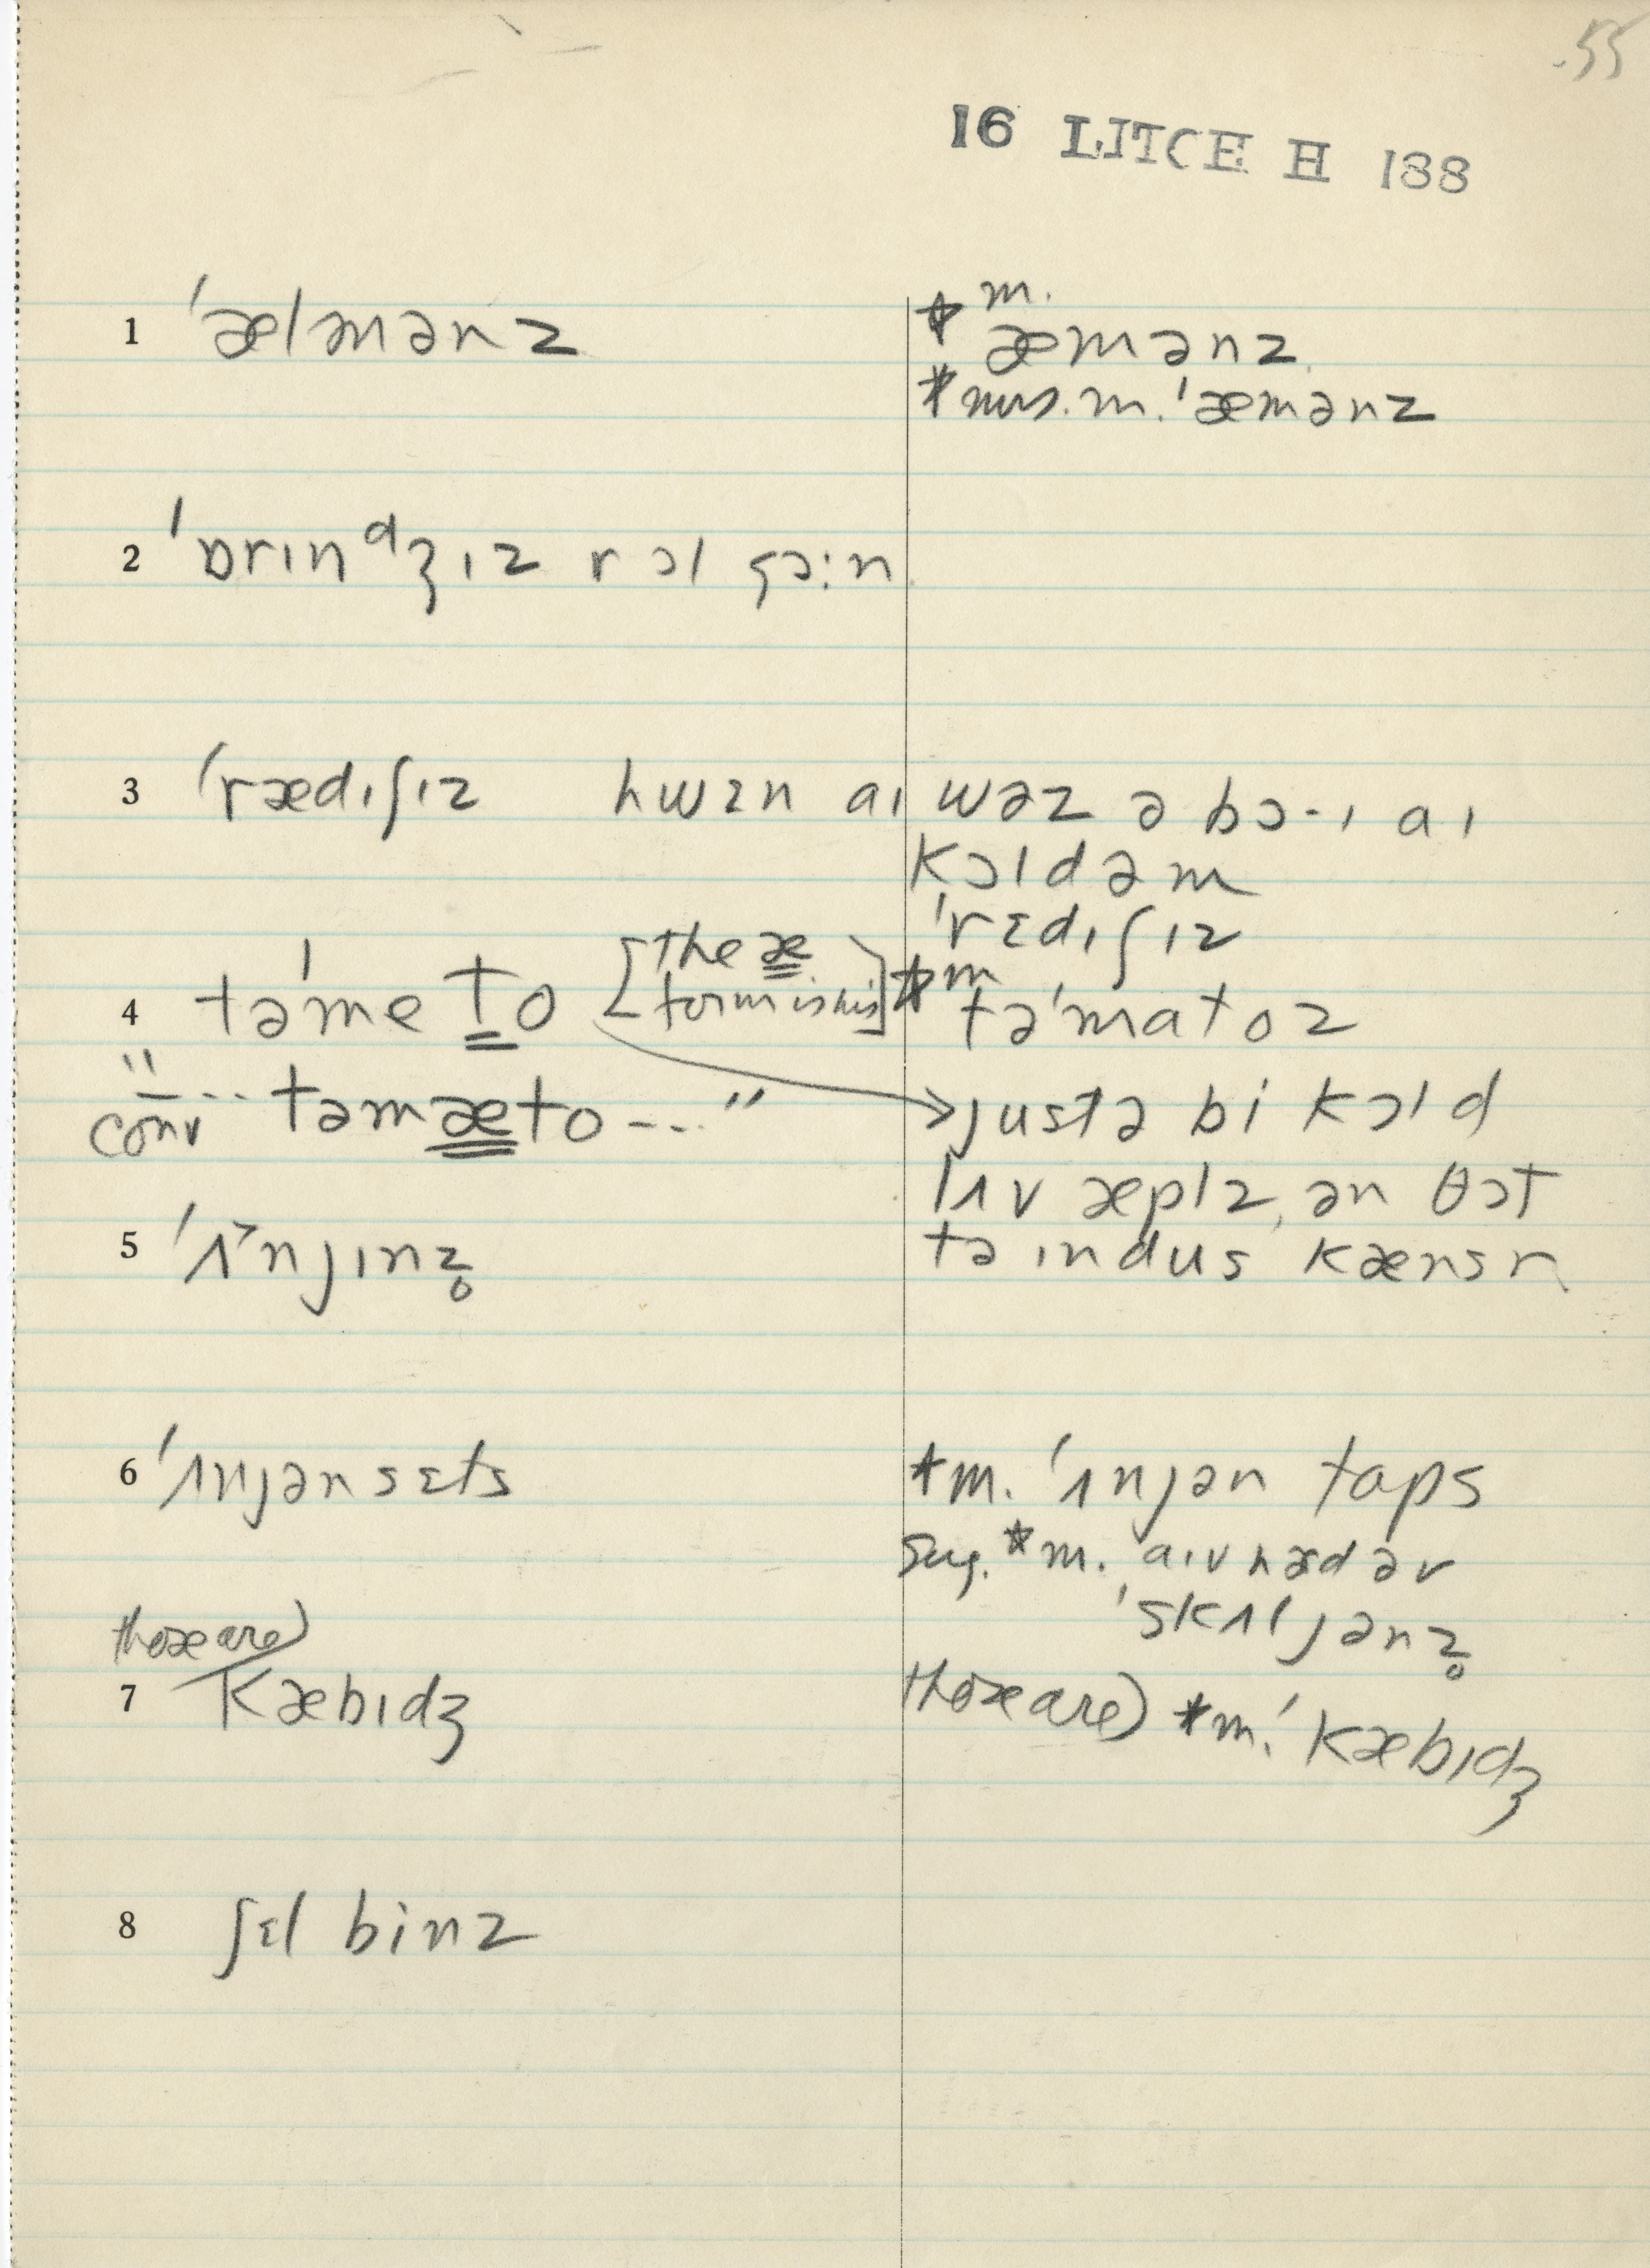 55
16 LITCE H 188
1 ˈælmənz
* m. æmənz
* mrs. m. ˈæmənz
2 ˈɒrɪnᵈʒɪz r ɔl gɔ:n
3 ˈrædɪʃɪz hwɛn aɪ wəz ə bɔ·ɪ aɪ
kɔldəm
ˈrɛdɪʃɪz
4 təˈmeto [the æ form is his] * m təˈmatoz
conv "-... təmæto---"
→justə bi kɔld
lʌv æplz, ən θɔt
tə ɪndus kænsr
5 ˈʌ̃njɪnz̥
6 ˈʌnjənsɛts
* m. ˈʌnjən taps
sug. * m. aɪv hæd əv
ˈskʌljənz̥
7 those are) kæbɪdʒ
those are) * m. ˈkæbɪdʒ
8 ʃɛl binz